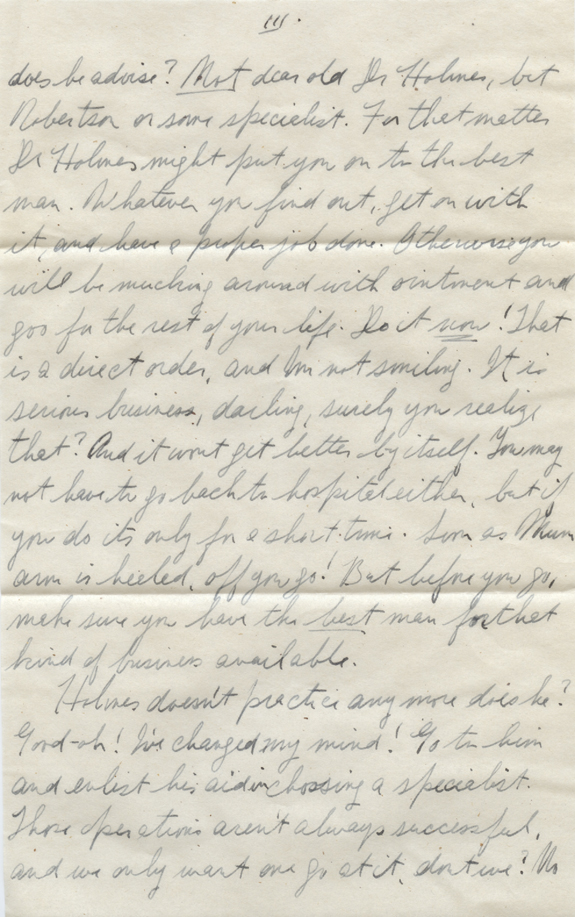 III.
does he advise? Not dear old Dr Holmes, but
Robertson or some specialist. For that matter
Dr Holmes might put you on to the best
man. Whatever you find out, get on with
it, and have a proper job done. Otherwise you
will be mucking around with ointment and
goo for the rest of your life. Do it now! That
is a direct order, and I'm not smiling. It is
serious business, darling, surely you realize
that? And it wont get better by itself. You may
not have to go back to hospital either, but if
you do its only for a short time. Soon as Mum
arm is healed, off you go! But before you go,
make sure you have the best man for that
kind of business available.
Holmes doesn't practice any more does he?
Good-oh! I've changed my mind! Go to him
and enlist his aid in choosing a specialist.
Those operations aren't always successful,
and we only want one go at it, don't we? No